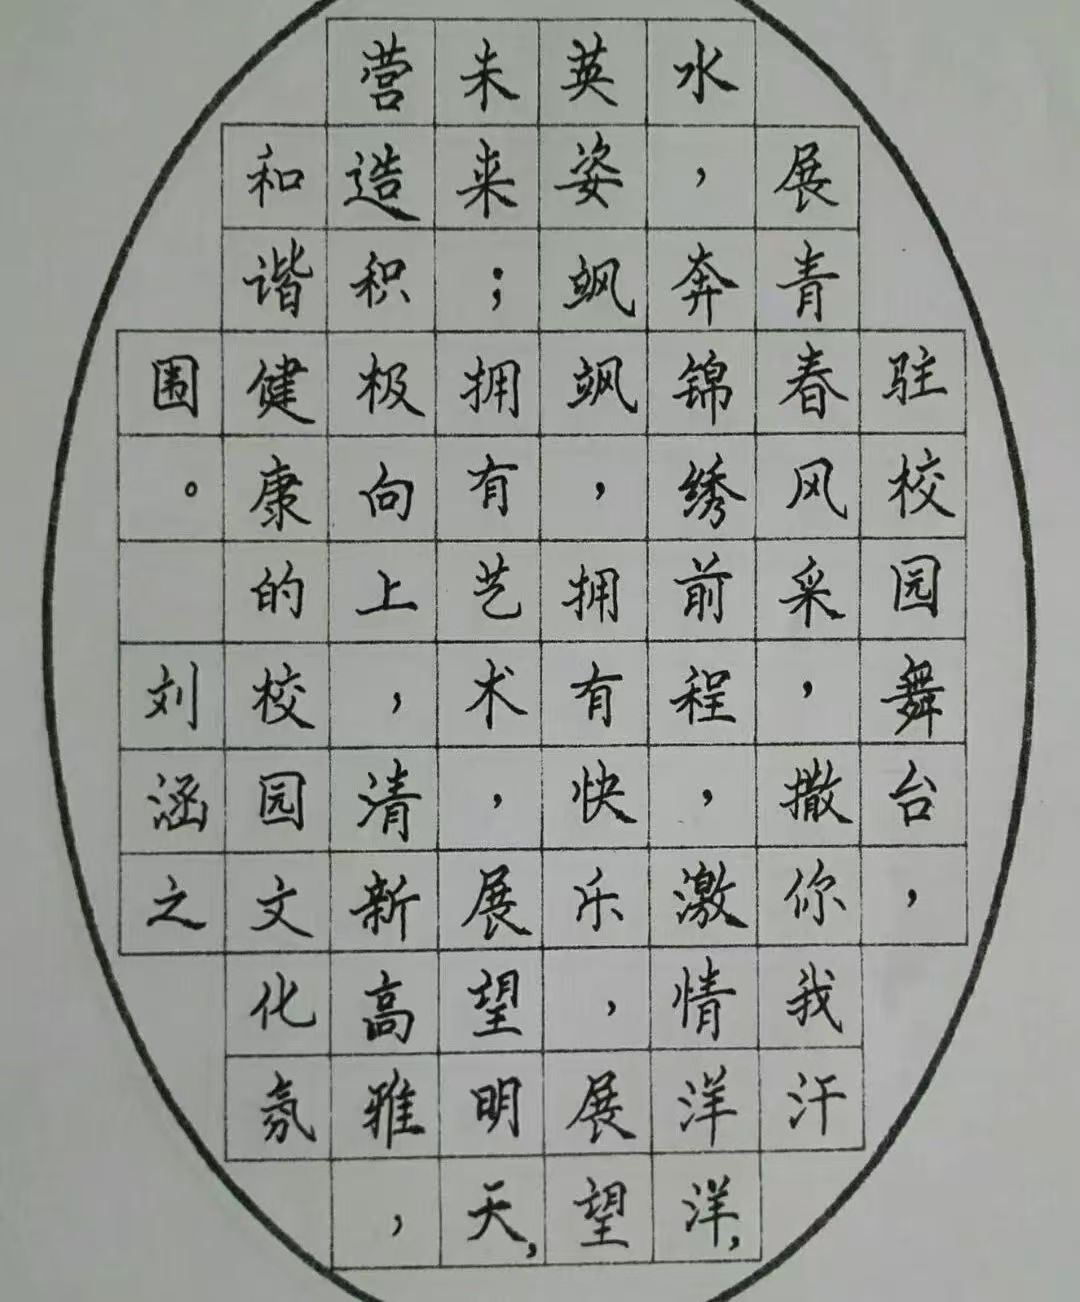 驻校园舞台，
展青春风采，撒你我汗
水，奔锦绣前程，激情洋洋，
英姿飒飒，拥有快乐，展望
未来；拥有艺术，展望明天，
营造积极向上，清新高雅，
和谐健康的校园文化氛
围。 刘涵之